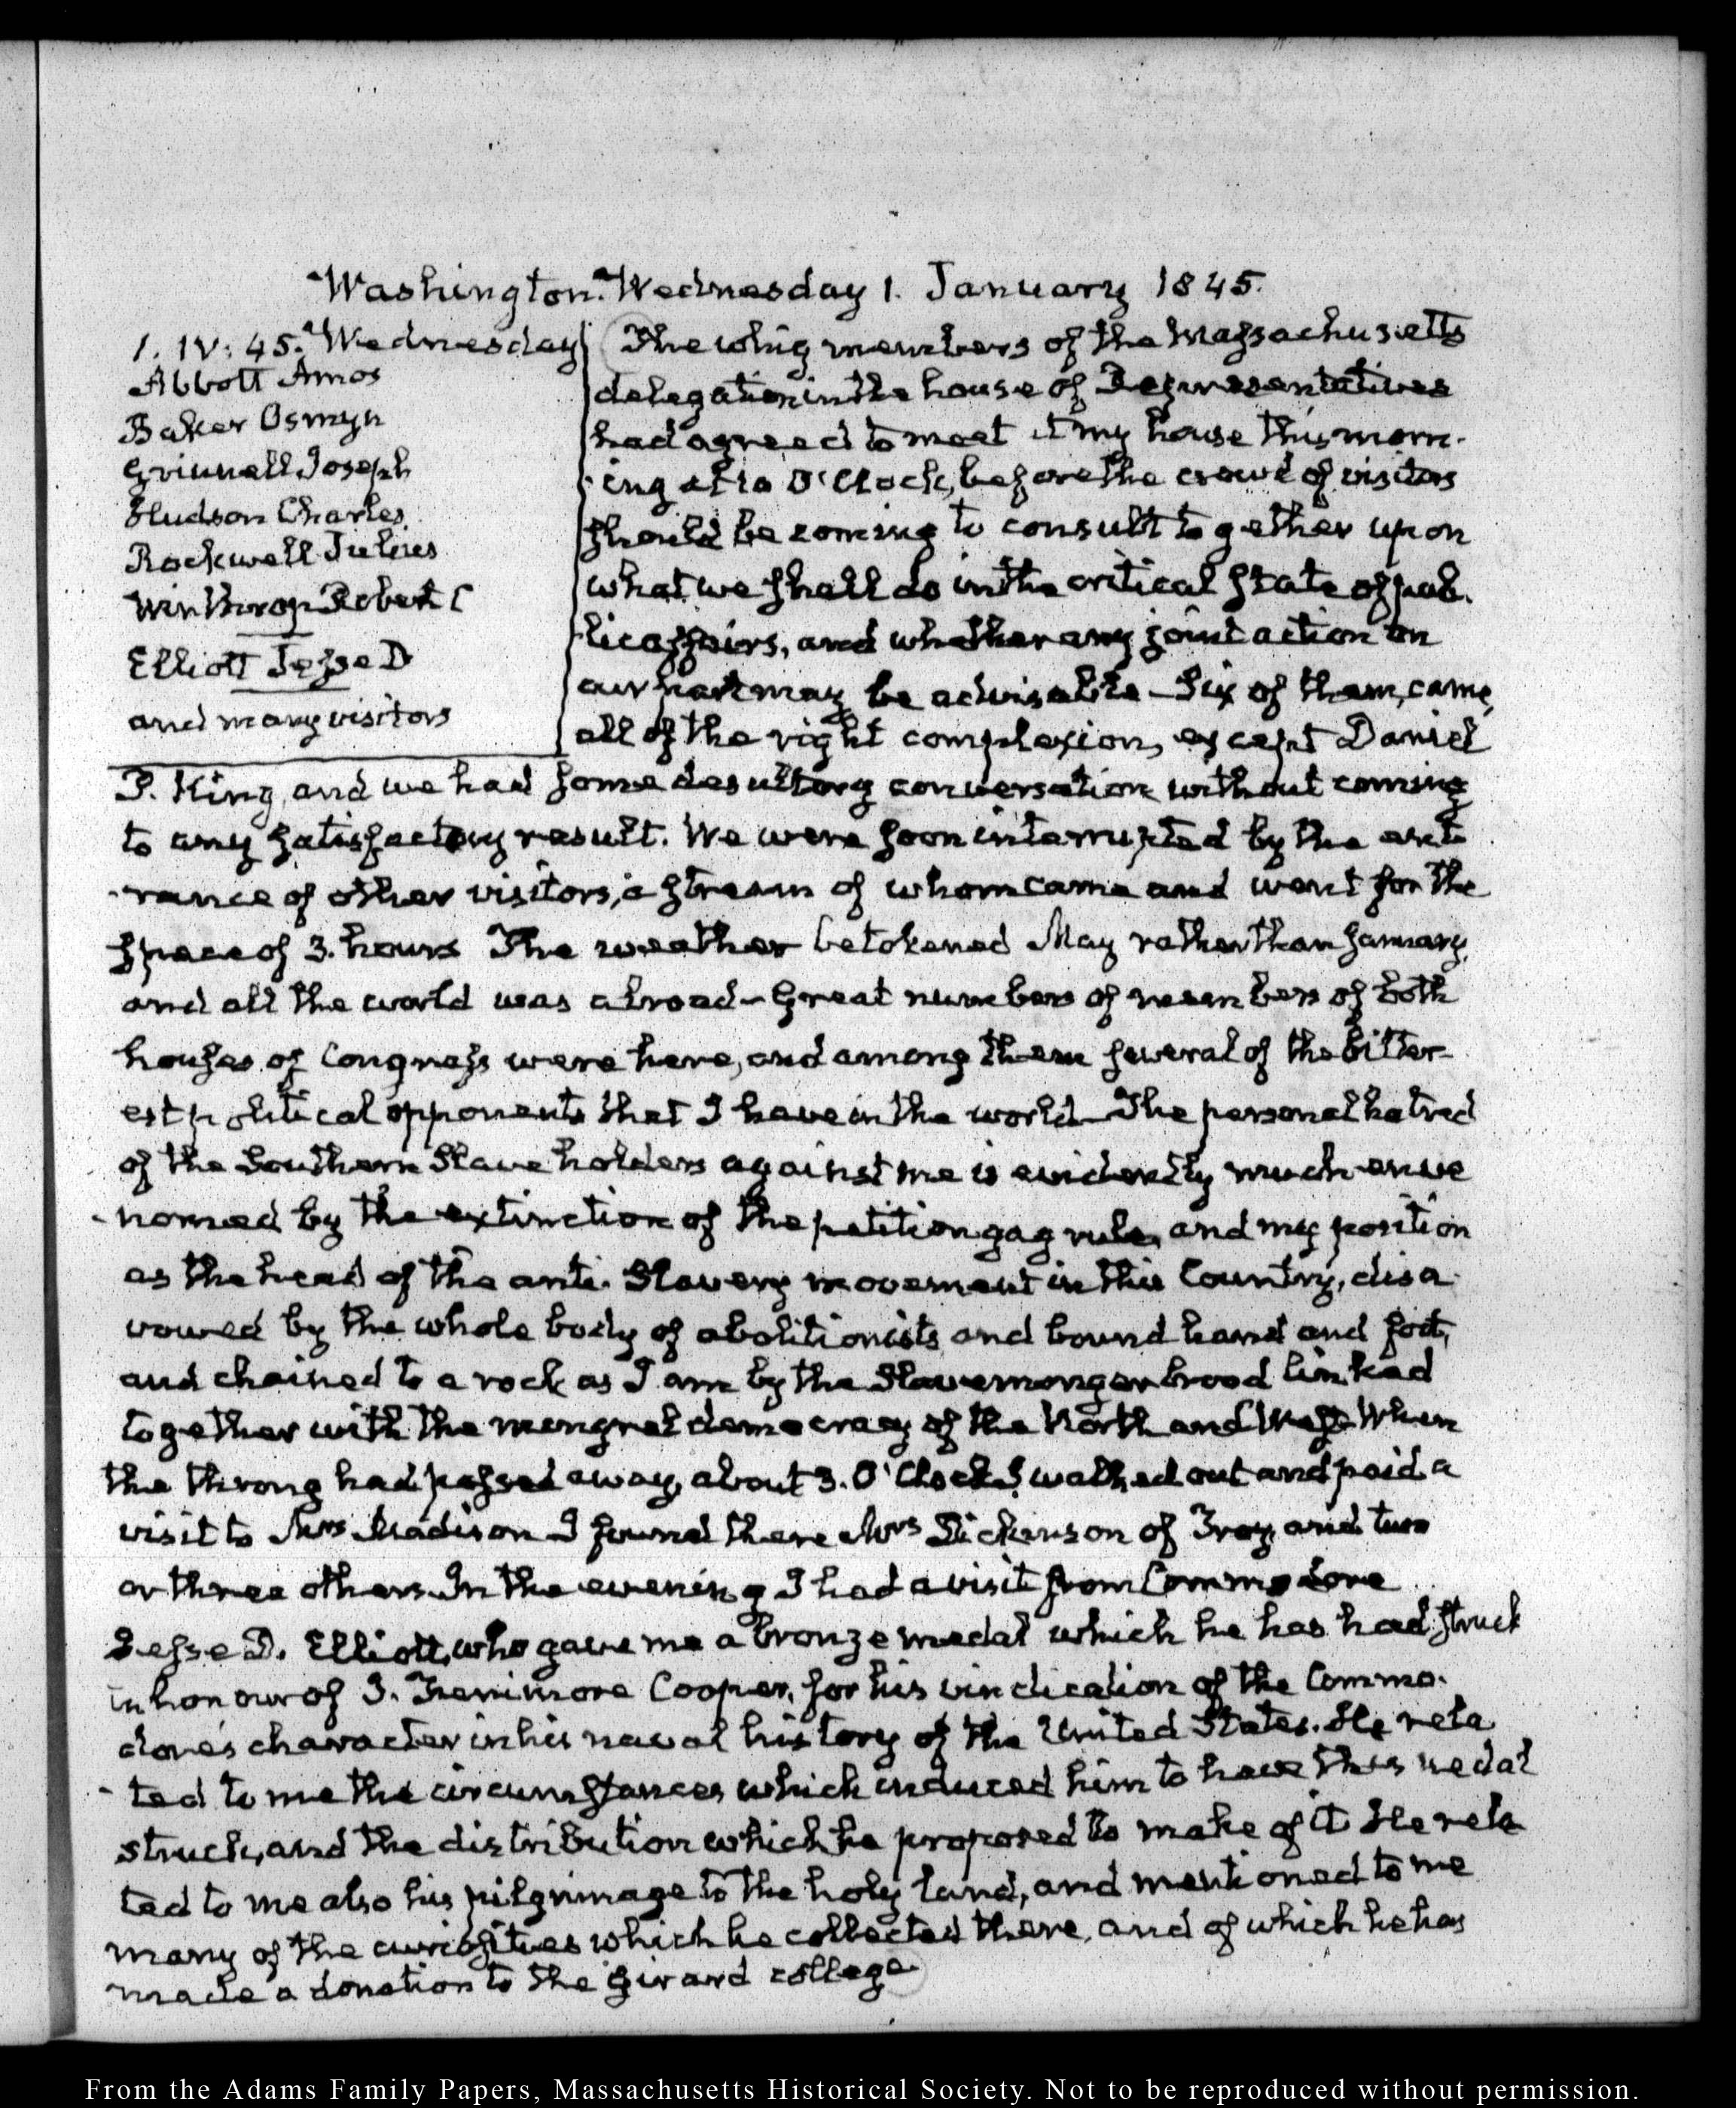 Washington. Wednesday 1. January 1845.
1. IV: 45. Wednesday
Abbott Amos
Baker Osmyn
Grinnell Joseph
Hudson Charles
Rockwell Julius
Winthrop Robert C
Elliott Jesse D
and many visitors
The whig members of the Massachusetts
delegation in the house of Representatives
had agreed to meet at my house this morn-
ing at 10 O'Clock, before the crowd of visitors
should be coming to consult together upon
what we shall do in the critical state of pub-
lic affairs, and whether any joint action on
our part may be advisable—Six of them, came,
all of the right complexion, except Daniel
P. King, and we had some desultory conversation without coming
to any satisfactory result. We were soon interrupted by the ent
-rance of other visitors, a stream of whom came and went for the
space of 3. hours The weather betokened May rather than January,
and all the world was abroad—Great numbers of members of both
houses of Congress were here, and among them several of the bitter-
est political opponents that I have in the world—The personal hatred
of the Southern Slave holders against me is evidently much enve
-nomed by the extinction of the petition gag rule, and my position
as the head of the anti-Slavery movement in this Country, disa-
vowed by the whole body of abolitionists and bound hand and foot,
and chained to a rock as I am by the Slavemonger brood linked
together with the mongrel democracy of the North and West. When
the throng had passed away, about 3. O'Clock I walked out and paid a
visit to Mrs Madison I found there Mrs Dickinson of Troy, and two
or three others. In the evening I had a visit from Commodore
Jesse D. Elliott, who gave me a bronze medal which he has had struck
in honour of J. Fenimore Cooper, for his vindication of the Commo-
dore's character in his naval history of the United States. He rela
-ted to me the circumstances which induced him to have this medal
struck, and the distribution which he proposed to make of it He rela
ted to me also his pilgrimage to the holy land, and mentioned to me
many of the curiosities which he collected there, and of which he has
made a donation to the Girard college
From the Adams Family Papers, Massachusetts Historical Society. Not to be reproduced without permission.